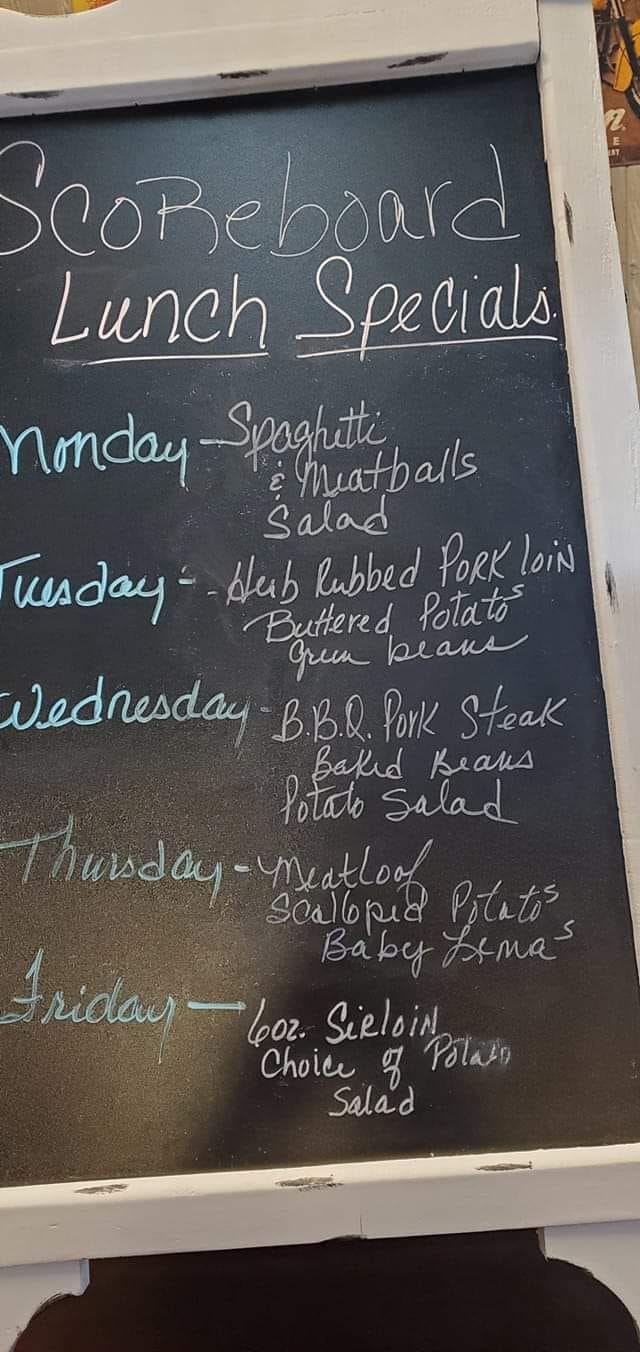 ScoReboard
Lunch Specials.
Monday - Spaghetti
& Meatballs
Salad
Tuesday - - Herb Rubbed PORK loiN
Buttered Potatos
Green beans
Wednesday - B.B.Q. Pork Steak
Baked Beans
Potato Salad
Thursday - Meatloaf
Scalloped Potatos
Baby Limas
Friday - 6oz. SiRloiN
Choice of Potato
Salad